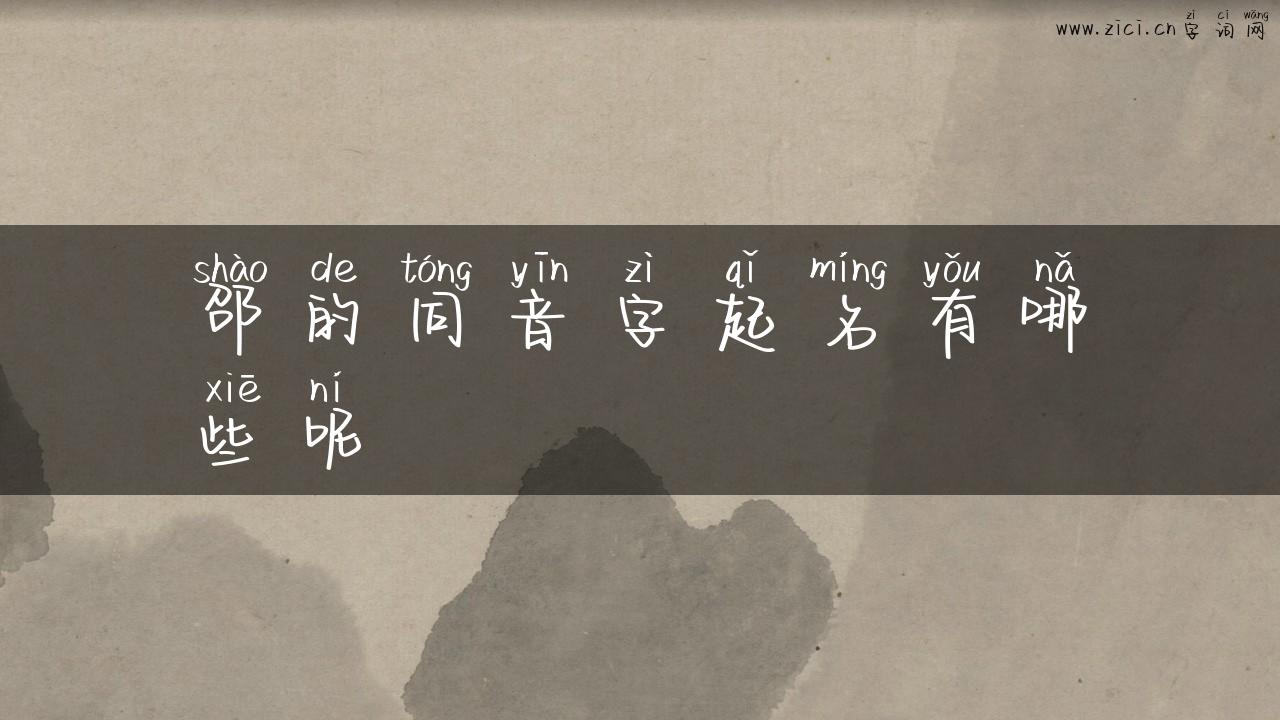 zì cí wǎng
www.zici.cn 字 词 网
shào de tóng yīn zì qǐ míng yǒu nǎ
邵 的 同 音 字 起 名 有 哪
xiē ní
些 呢